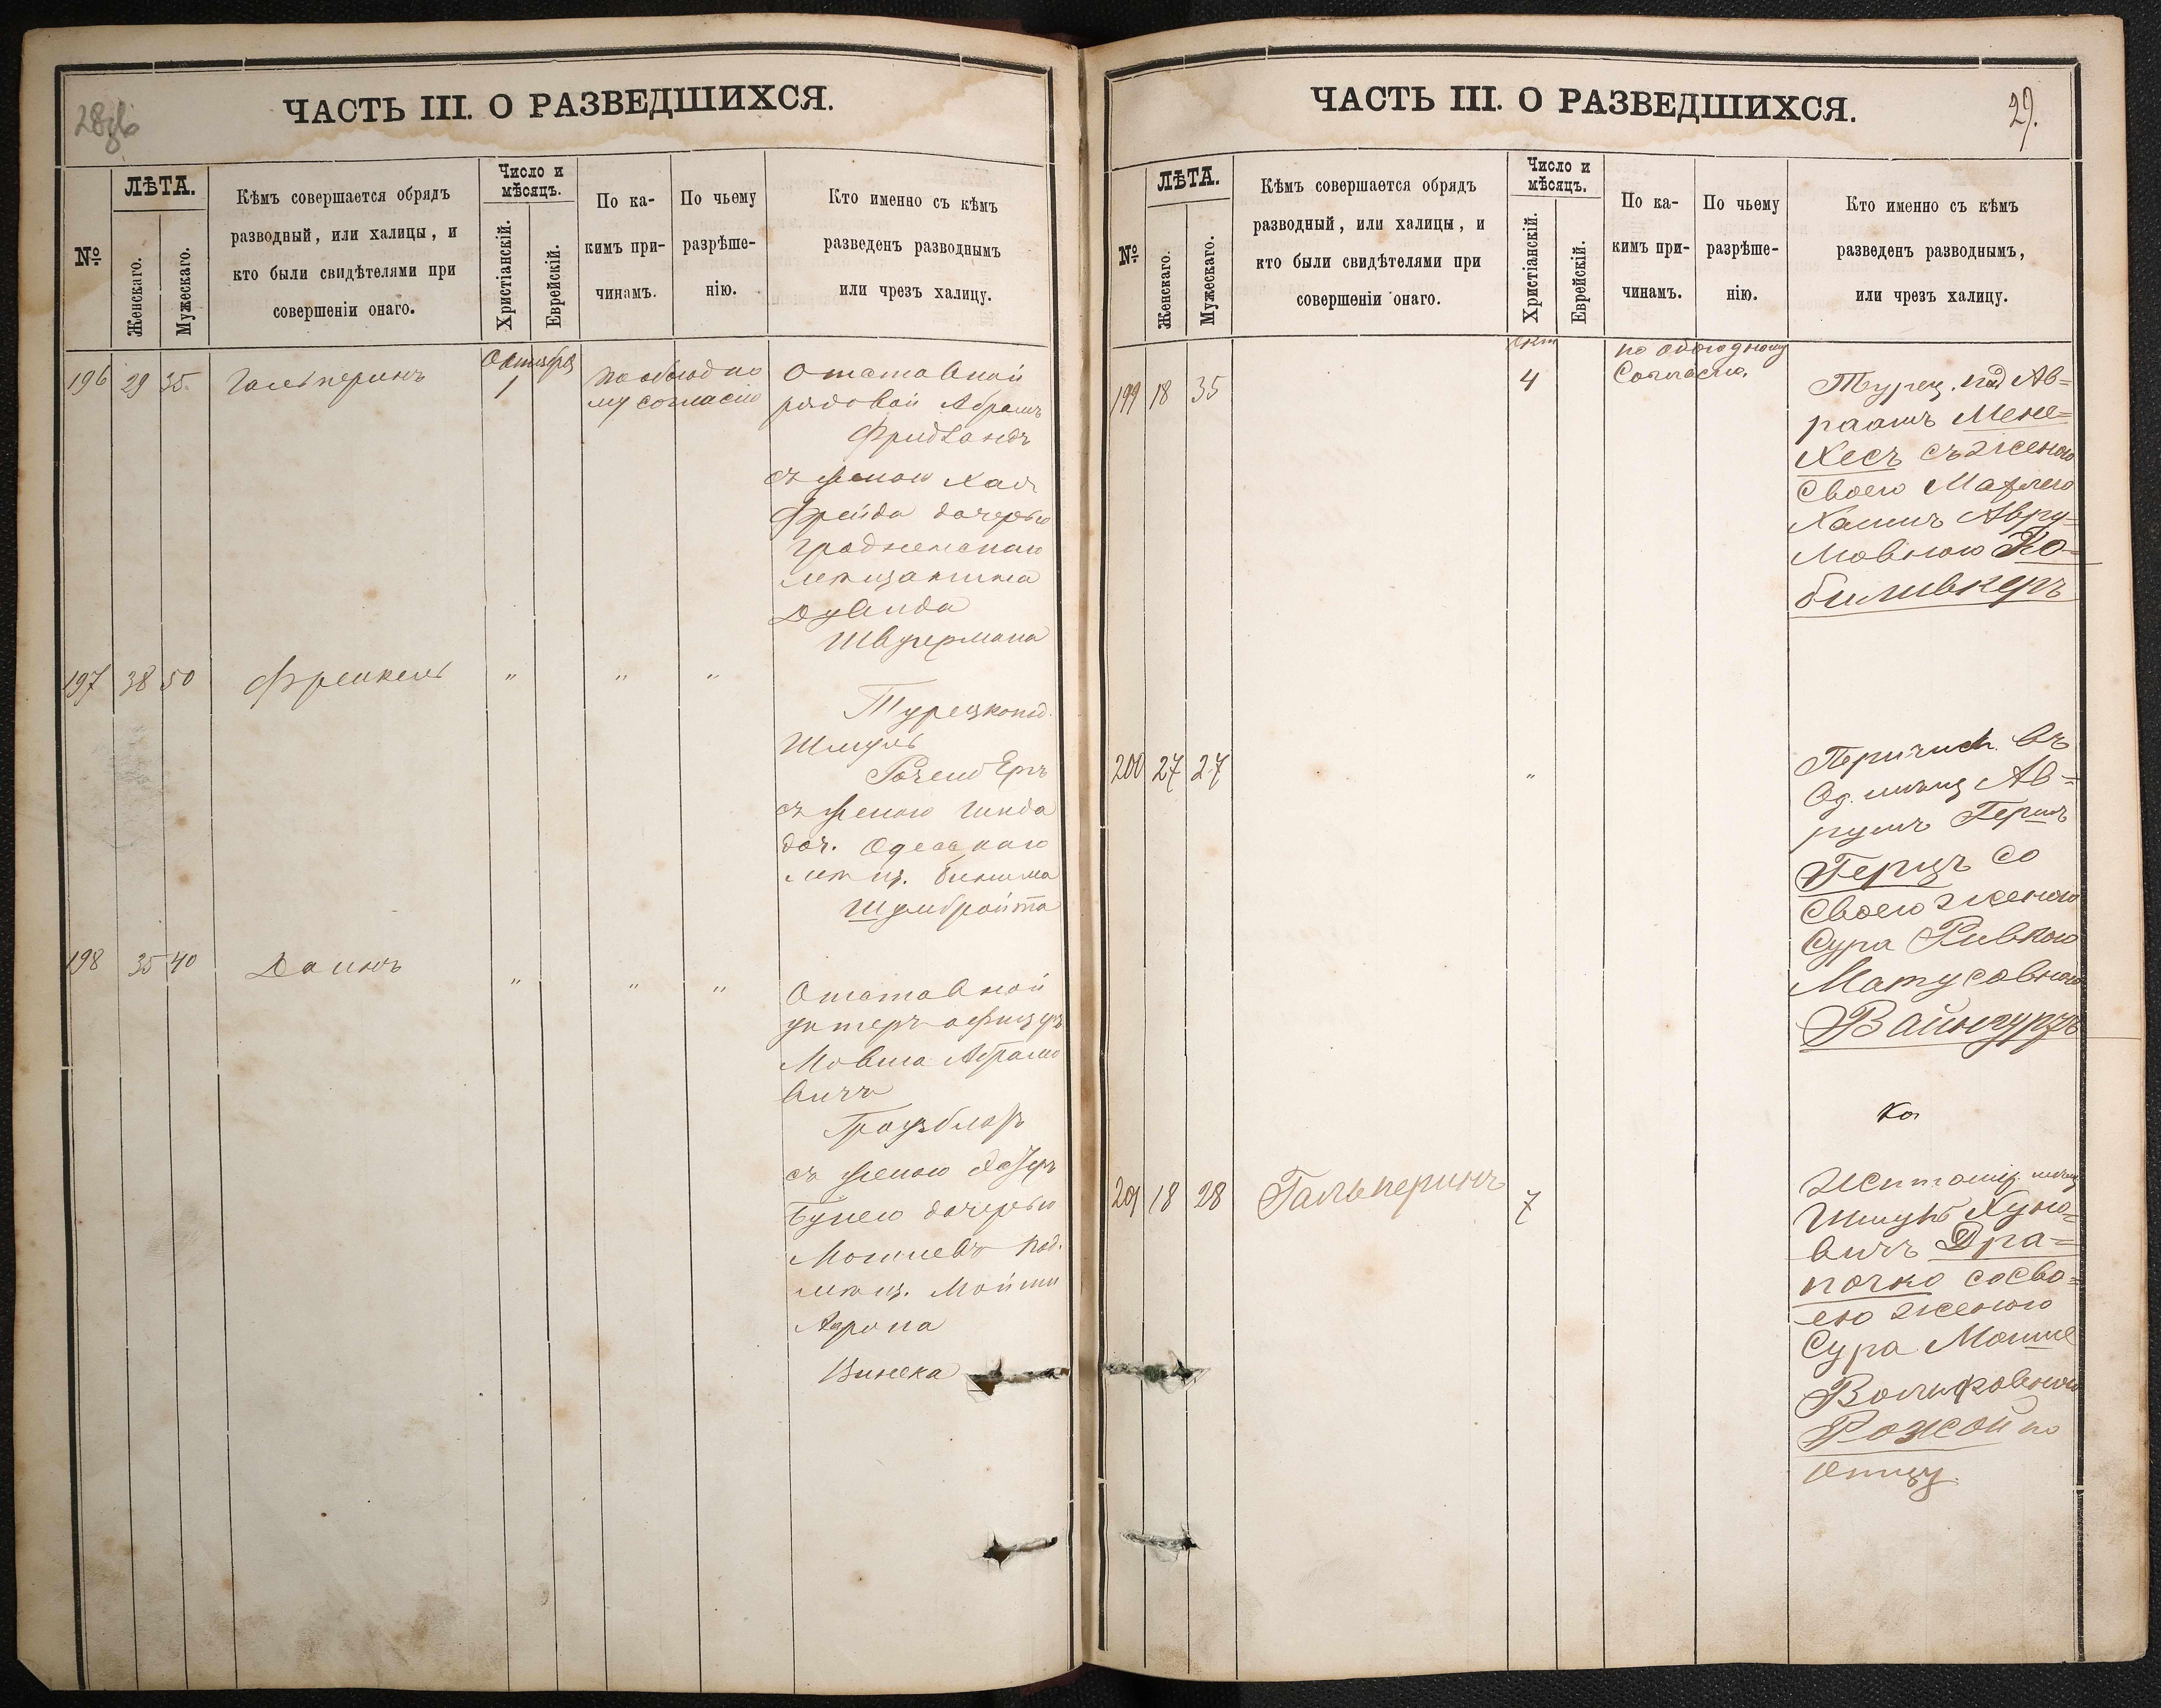 28об
ЧАСТЬ III. О РАЗВЕДШИХСЯ.
№
ЛѢТА.
Женскаго.
Мужескаго.
Кѣмъ совершается обрядъ
разводный, или халицы, и
кто были свидѣтелями при
совершеніи онаго.
Число и
мѣсяцъ.
Христіанскій.
Еврейскій.
По ка-
кимъ при-
чинамъ.
По чьему
разрѣше-
нію.
Кто именно съ кѣмъ
разведенъ разводнымъ
или чрезъ халицу.
196 29 35 Гальперинъ
Октября
1
по обоюдно
му согласію
Отставной
рядовой Абрамъ
Фридландъ
съ женою Хая
Фрейда дочерью
Гродненскаго
мѣщанина
Дувида
Швугермана
197 38 50 Френкель " " "
Турецкопод.
Шмуль
Розенбергъ
съ женою Гинда
доч. Одесскаго
мѣщ.
Шумбройта
198 35 40 Даинъ " " "
Отставной
унтеръ-офицеръ
Мовша Абрамо
вичъ
съ женою
дочерью
под.
мѣщ.
Арона
Винека
ЧАСТЬ III. О РАЗВЕДШИХСЯ.
29.
№
ЛѢТА.
Женскаго.
Мужескаго.
Кѣмъ совершается обрядъ
разводный, или халицы, и
кто были свидѣтелями при
совершеніи онаго.
Число и
мѣсяцъ.
Христіанскій.
Еврейскій.
По ка-
кимъ при-
чинамъ.
По чьему
разрѣше-
нію.
Кто именно съ кѣмъ
разведенъ разводнымъ,
или чрезъ халицу.
199 18 35
Окт
4
по обоюдному
Согласію.
Турец. под Ав=
раамъ Мене=
Хесъ съ женою
Своею
Авру=
мовною Ко=
биливкеръ
200 27 27 "
Перечисл. въ
Од. мѣщ Ав=
румъ Гершъ
Герцъ со
Своею женою
Сура Ривкою
Матусовною
Вайнгурзъ
Ка
201 18 28 Гальперинъ 7
Житомір. мѣщ
Шмуль Хуно=
вичъ Дра=
почко со сво=
ею женою
Сура
Вольфовною
Рожой по
отцу.